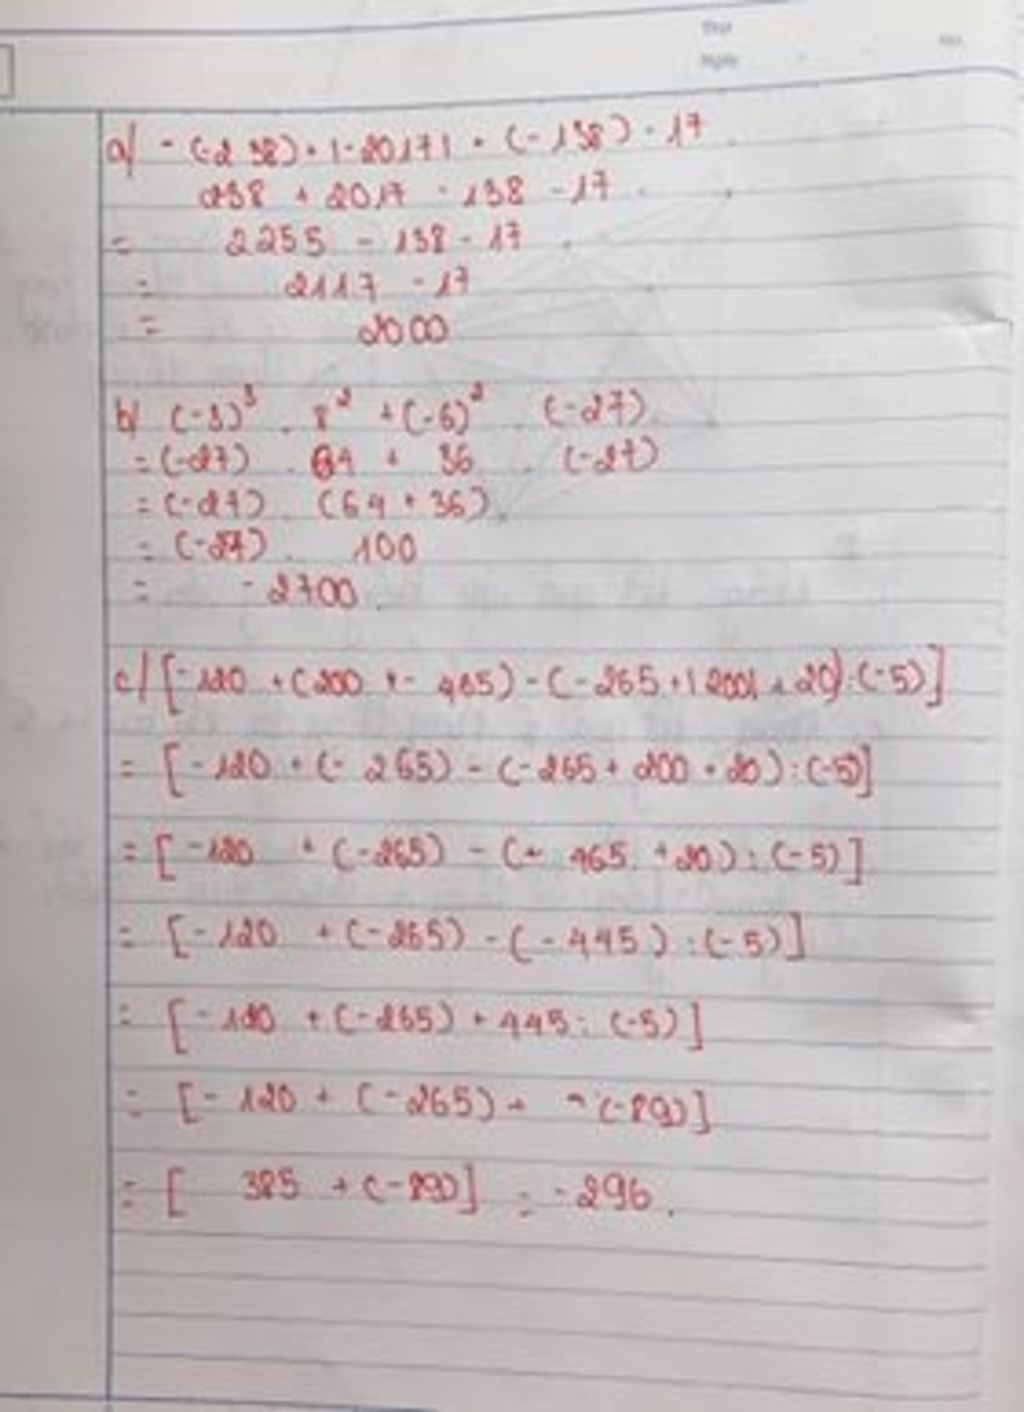 a/ - (-238) + |-2017| + (-138) - 17
238 + 2017 - 138 - 17
= 2255 - 138 - 17
= 2117 - 17
= 2000
b/ (-3)³ . 8² + (-6)² . (-27)
= (-27) . 64 + 36 . (-27)
= (-27) . (64 + 36)
= (-27) . 100
= -2700
c/ [-120 + (200 + - 465) - (-265 + |200| + 20) : (-5)]
= [-120 + (- 265) - (-265 + 200 + 20) : (-5)]
= [-120 + (-265) - (- 465 + 20) : (-5)]
= [-120 + (-265) - (-445) : (-5)]
= [-120 + (-265) + 445 : (-5)]
= [-120 + (-265) + (-89)]
= [ 385 + (-89)] = -296.